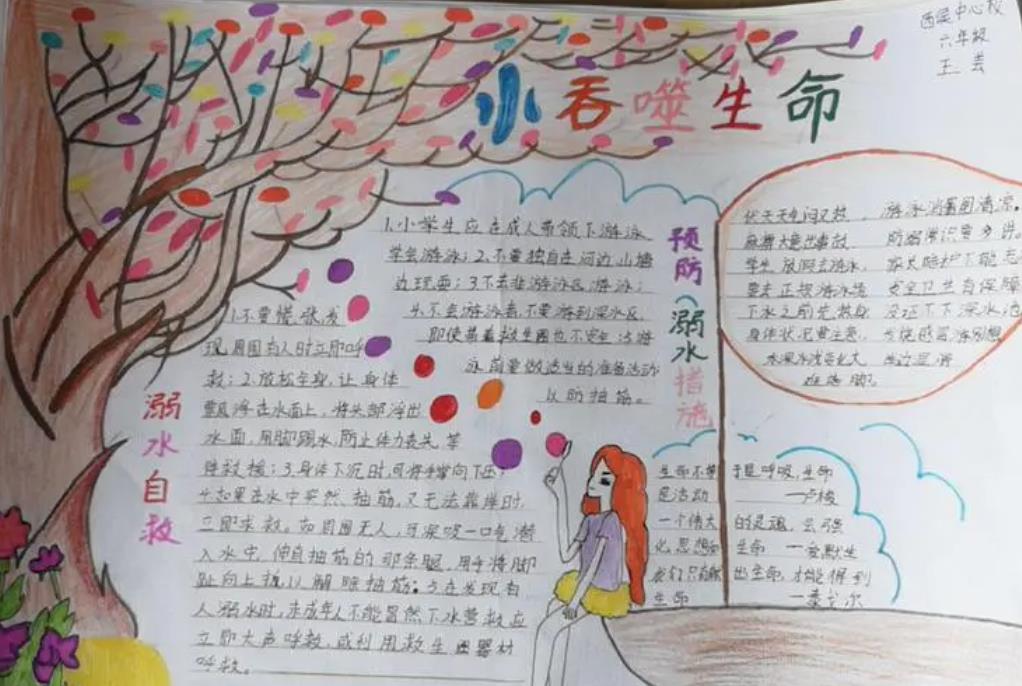 西吴中心校
六年级
王芸
水吞噬生命
预防溺水措施
1.小学生应在成人带领下游泳
学会游泳；2.不要独自在河边、山塘
边玩耍；3.不去非游泳区游泳；
4.不会游泳者，不要游到深水区
即使带着救生圈也不安全；5.游
泳前要做适当的准备活动
以防抽筋。
伏天天气闷又热，游泳消暑图清凉。
麻痹大意出事故 防溺常识要多讲。
学生放假去游泳，家长陪护不能忘
要去正规游泳馆 安全卫生有保障
下水之前先热身 没证不下深水池
身体状况要注意，发烧感冒
溺水自救
1.不要慌张，发
现周围有人时立即呼
救；2.放松全身，让身体
飘浮在水面上，将头部浮出
水面，用脚踢水，防止体力丧失，等
待救援；3.身体下沉时，可将手掌向下压；
4.如果在水中突然抽筋，又无法靠岸时，
立即求救。如周围无人，可深吸一口气潜
入水中，伸直抽筋的那条腿，用手将脚
趾向上扳，以解除抽筋；5.在发现有
人溺水时，未成年人不能冒然下水营救，应
立即大声呼救，或利用救生器材
呼救。
生命不等于是呼吸，生命
是活动 —卢梭
一个伟大的灵魂，会强
化思想和生命 —爱默生
我们只有献出生命，才能得到
生命 —泰戈尔